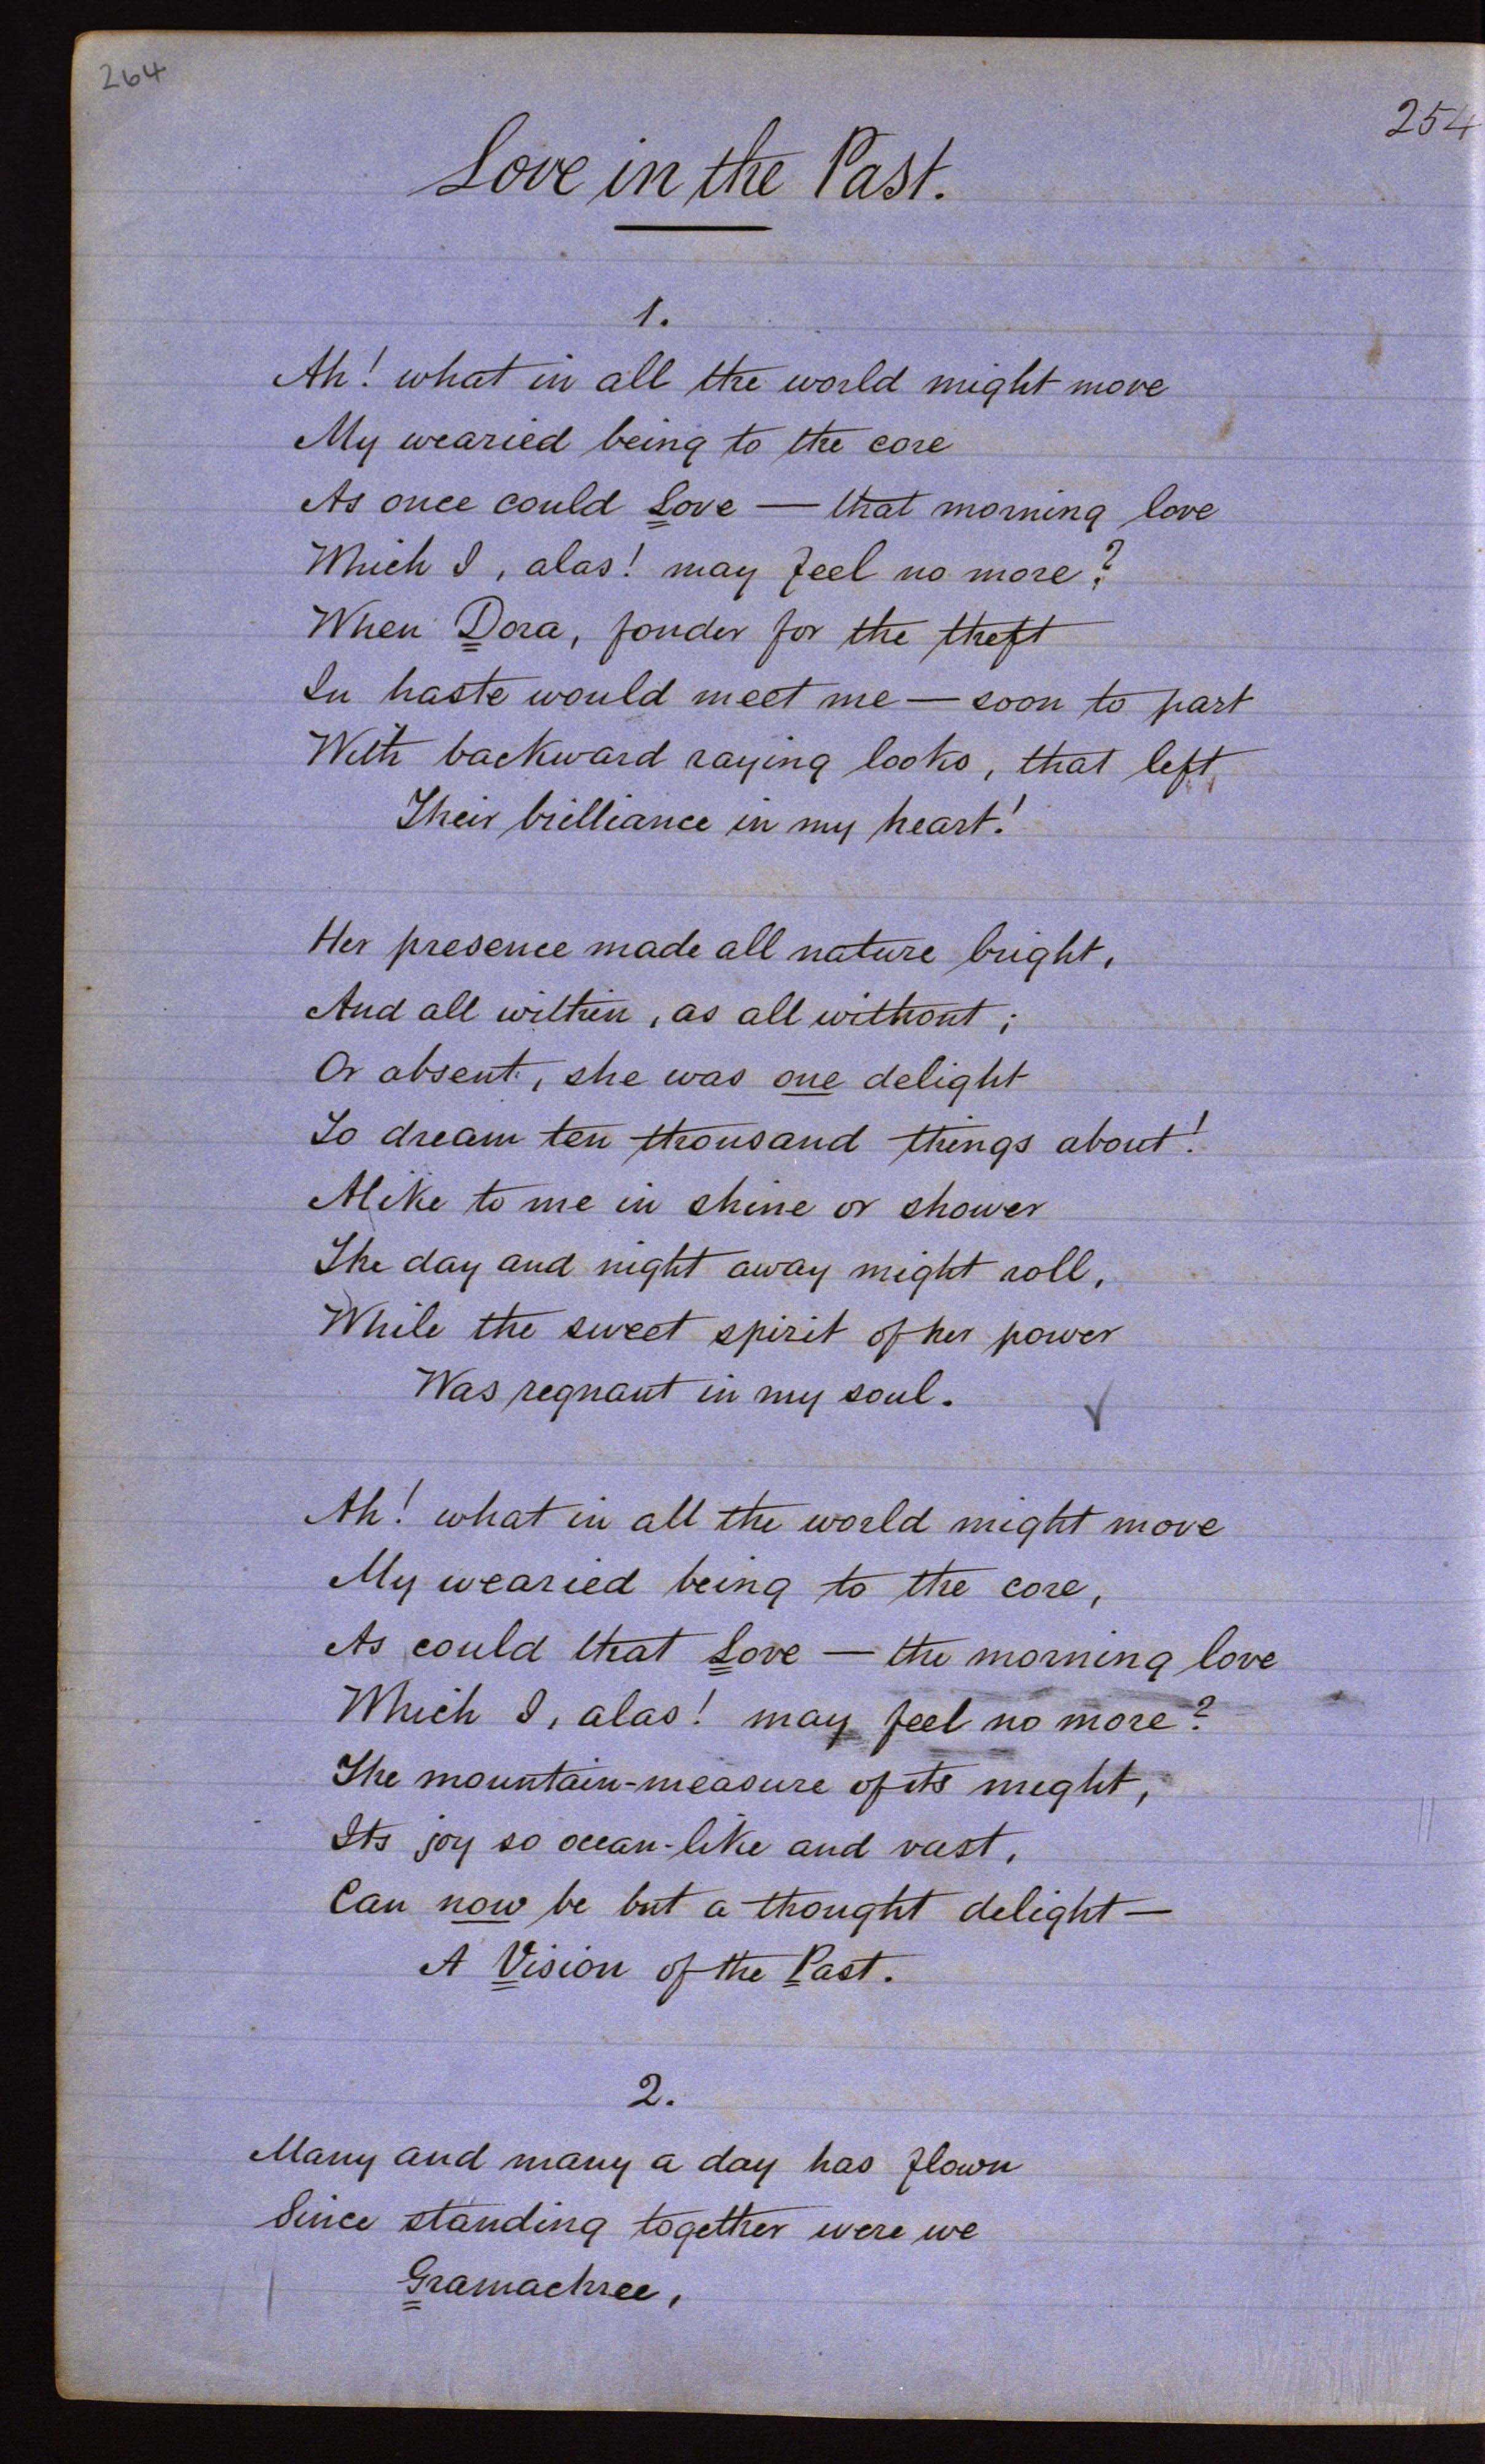 264
254
Love in the Past.
1.
Ah! what in all the world might move
My wearied being to the core
As once could Love — that morning love
Which I, alas! may feel no more?
When Dora, fonder for the theft
In haste would meet me — soon to part
With backward raying looks, that left
Their brilliance in my heart!
Her presence made all nature bright,
And all within, as all without;
Or absent, she was one delight
To dream ten thousand things about!
Alike to me in shine or shower
The day and night away might roll,
While the sweet spirit of her power
Was regnant in my soul.
Ah! what in all the world might move
My wearied being to the core,
As could that Love — the morning love
Which I, alas! may feel no more?
The mountain-measure of its might,
Its joy so ocean-like and vast,
Can now be but a thought delight—
A Vision of the Past.
2.
Many and many a day has flown
Since standing together were we
Gramachree,